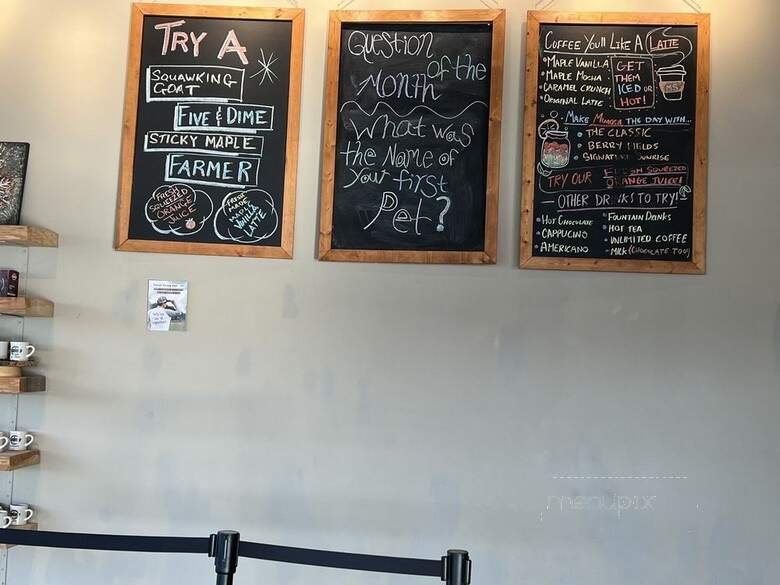 TRY A
SQUAWKING
GOAT
FIVE & DIME
STICKY MAPLE
FARMER
FRESH
SQUEEZED
ORANGE
JUICE
MAPLE
VANILLA
LATTE
Question
of the
Month
What was
the Name of
your first
Pet?
COFFEE YOU'LL LIKE A LATTE
• MAPLE VANILLA
• MAPLE MOCHA
• CARAMEL CRUNCH
• ORIGINAL LATTE
GET
THEM
ICED OR
HOT!
MAKE MIMOSA THE DAY WITH...
• THE CLASSIC
• BERRY FIELDS
• SIGNATURE SUNRISE
TRY OUR FRESH SQUEEZED
ORANGE JUICE!
OTHER DRINKS TO TRY!
• HOT CHOCOLATE
• CAPPUCINO
• AMERICANO
• FOUNTAIN DRINKS
• HOT TEA
• UNLIMITED COFFEE
• MILK (CHOCOLATE TOO!)
menupix